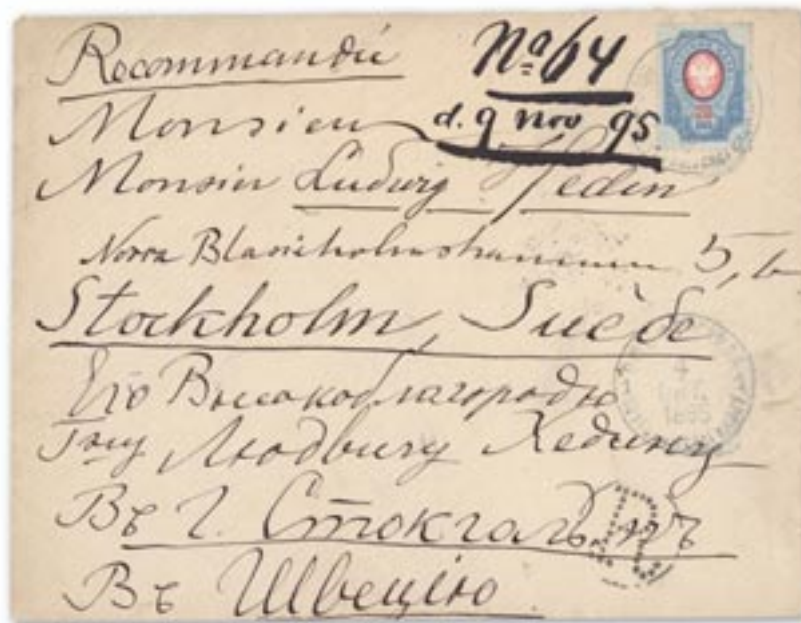 Recommandée
No 64
d. 9 Nov 95
Monsieur
Monsieur Ludwig Hedin
Norra Blasieholmshamnen 5, b
Stockholm, Suède
Его Высокоблагородію
Гну Людвигу Хедину
Въ г. Стокгольмъ
Въ Швецію
R